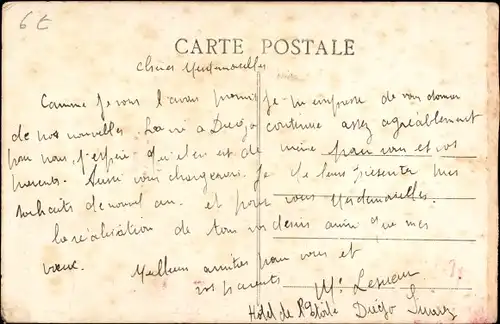 6 E
CARTE POSTALE
Chères Mesdemoiselles
Comme je vous l'avais promis je m'empresse de vous donner
de nos nouvelles. La vie à Diégo continue assez agréablement
pour nous, j'espère qu'il en est de même pour vous et vos
parents. Aussi vous chargerais je de leur présenter mes
souhaits de nouvel an. et pour vous Mesdemoiselles.
la réalisation de tous vos désirs ainsi que mes
vœux. Meilleures amitiés pour vous et
vos parents
Hôtel de l'Etoile Diégo Suarez